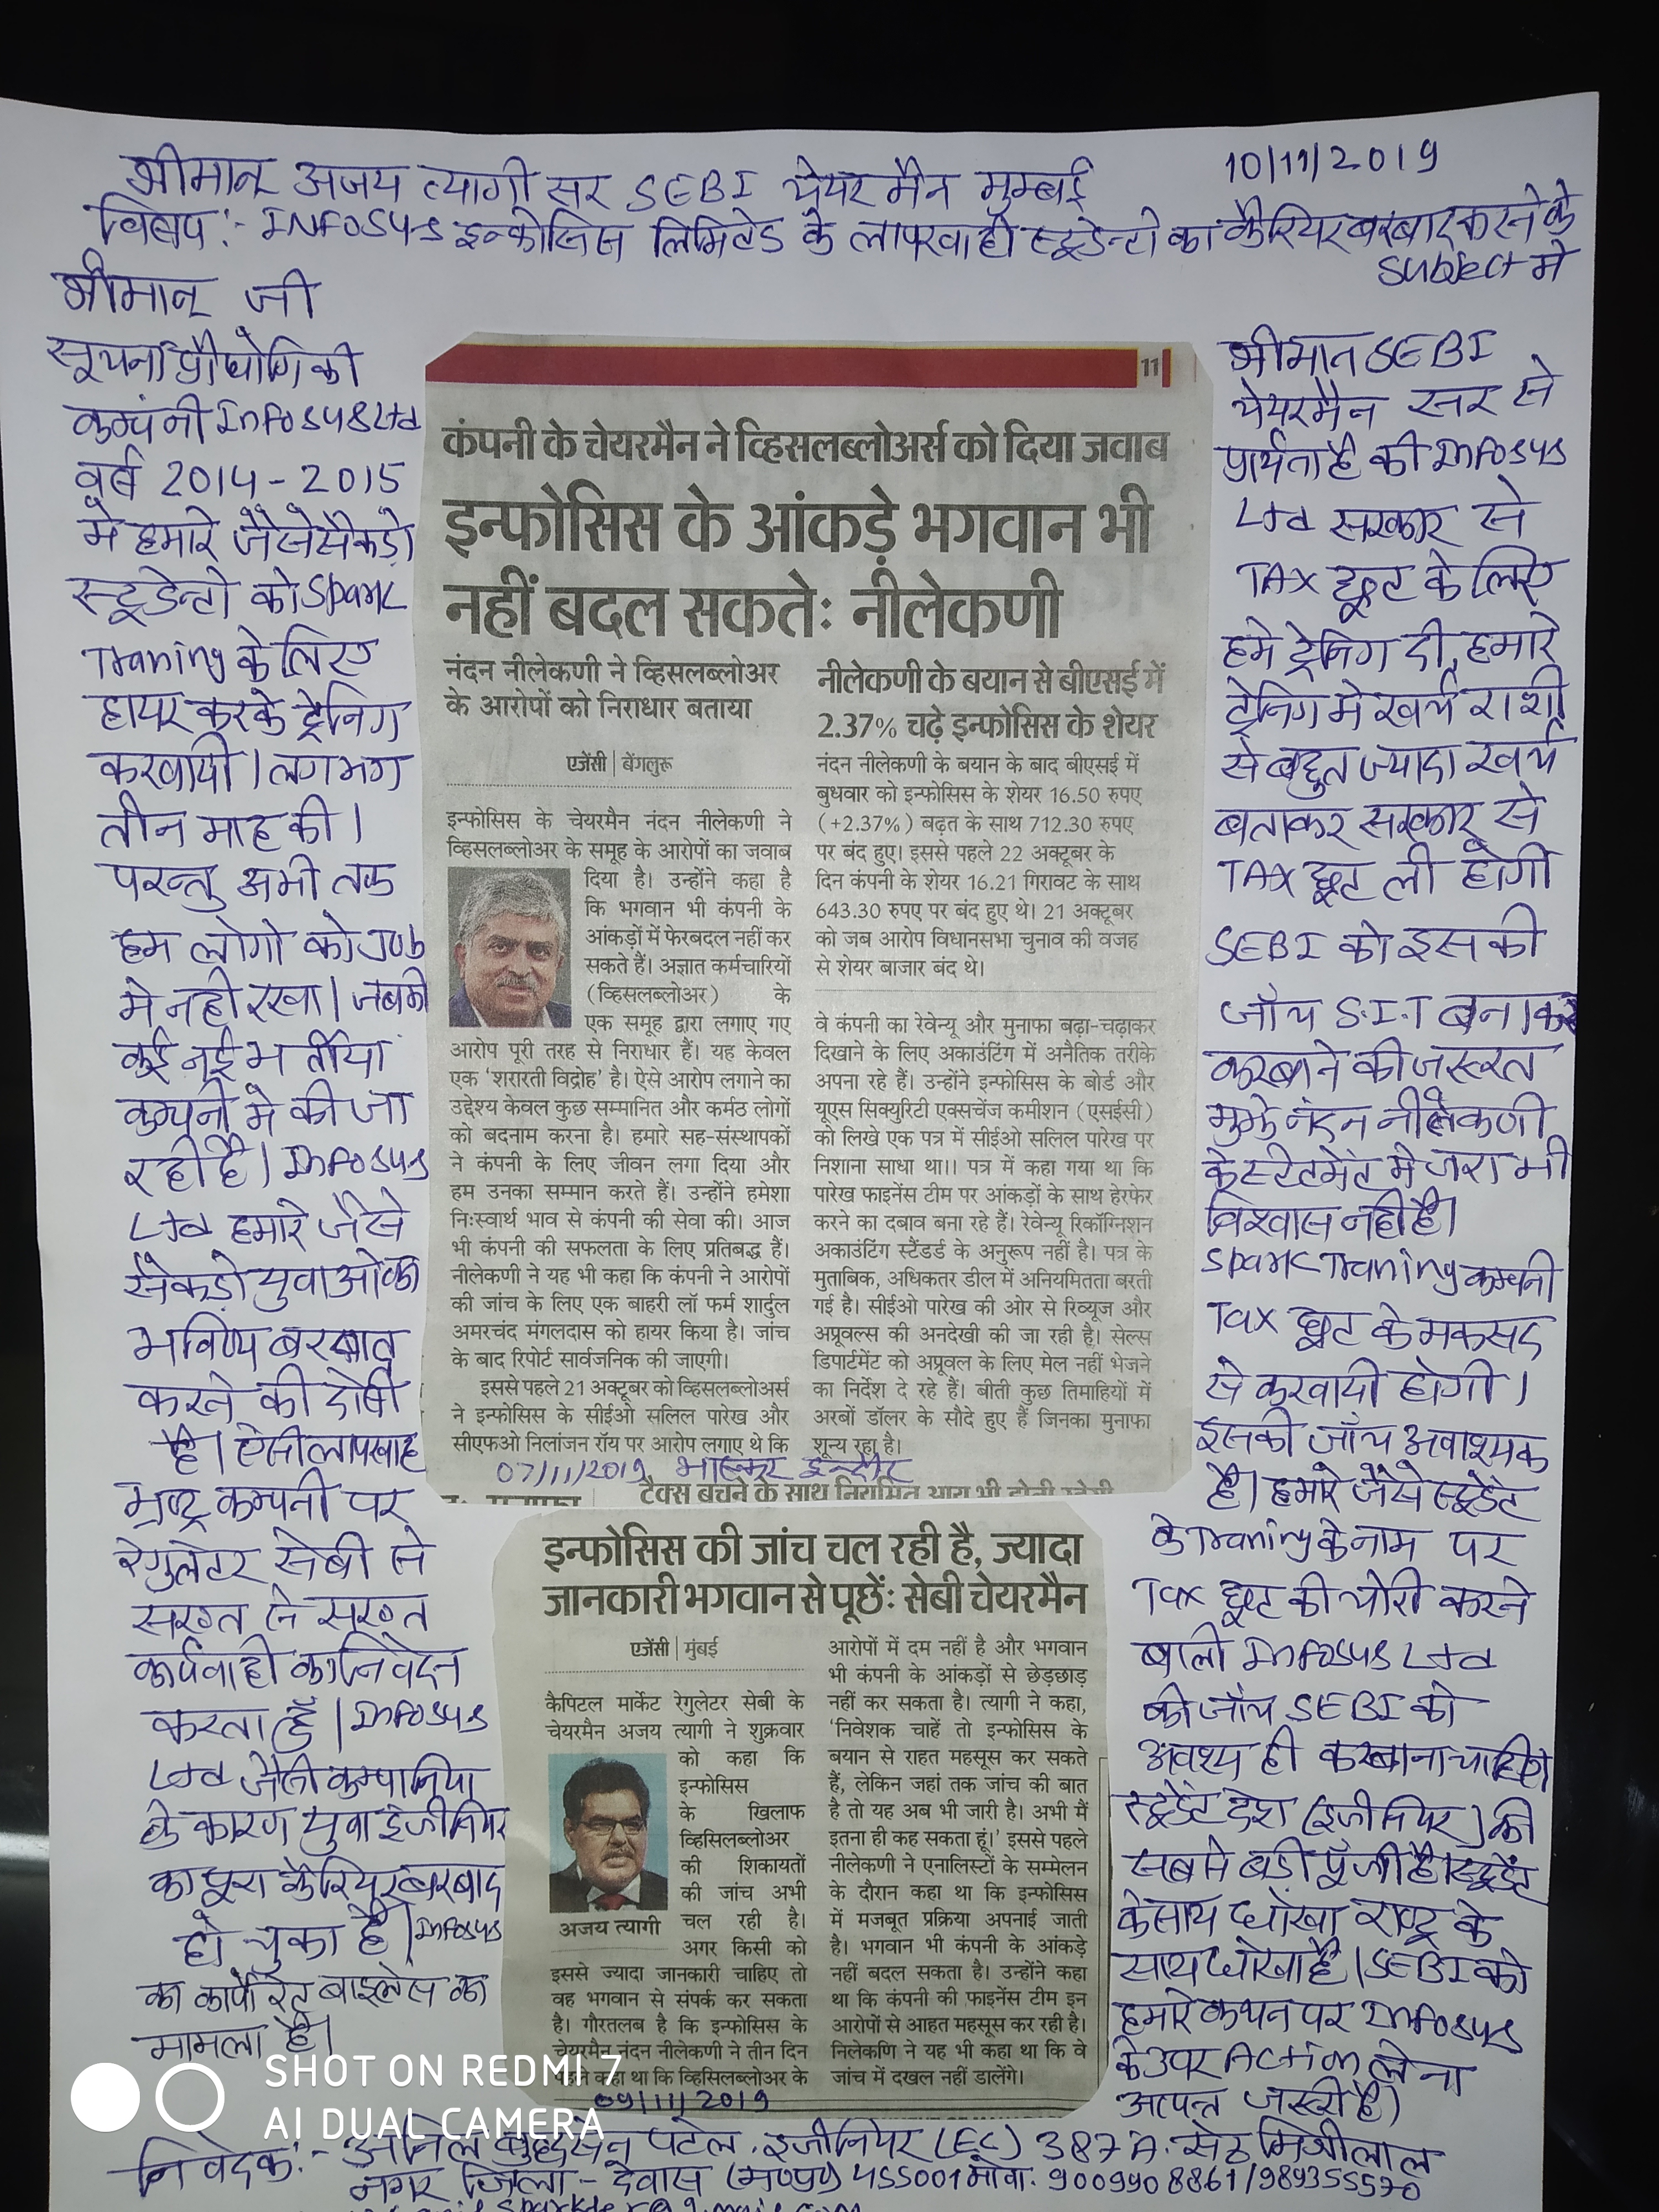 10/11/2019
श्रीमान् अजय त्यागी सर SEBI चेयरमैन मुम्बई
विषय:- INFOSYS इन्फोसिस लिमिटेड के लापरवाही स्टूडेन्टो का कैरियर बरबाद करने के
subject मे
श्रीमान् जी
सूचना प्रौद्योगिकी
कम्पनी Infosys Ltd
वर्ष 2014-2015
मे हमारे जैसे सैकड़ो
स्टूडेन्टो को Spark
Traning के लिए
हायर करके ट्रेनिग
करवायी। लगभग
तीन माह की।
परन्तु अभी तक
हम लोगो को Job
मे नही रखा। जबकी
कई नई भर्तीया
कम्पनी मे की जा
रही है। Infosys
Ltd हमारे जैसे
सैकड़ो युवाओ का
भविष्य बरबाद
करने की दोषी
है। ऐसी लापरवाह
भ्रष्ट्र कम्पनी पर
रेगुलेटर सेबी से
सख्त से सख्त
कार्यवाही का निवेदन
करता हूँ। Infosys
Ltd जैसी कम्पानिया
के कारण युवा इंजीनियर
का पूरा कैरियर बरबाद
हो चुका है। Infosys
का कार्पोरेट
मामला है।
11
कंपनी के चेयरमैन ने व्हिसलब्लोअर्स को दिया जवाब
इन्फोसिस के आंकड़े भगवान भी
नहीं बदल सकते: नीलेकणी
नंदन नीलेकणी ने व्हिसलब्लोअर
के आरोपों को निराधार बताया
एजेंसी | बेंगलुरू
इन्फोसिस के चेयरमैन नंदन नीलेकणी ने
व्हिसलब्लोअर के समूह के आरोपों का जवाब
दिया है। उन्होंने कहा है
कि भगवान भी कंपनी के
आंकड़ों में फेरबदल नहीं कर
सकते हैं। अज्ञात कर्मचारियों
(व्हिसलब्लोअर) के
एक समूह द्वारा लगाए गए
आरोप पूरी तरह से निराधार हैं। यह केवल
एक ‘शरारती विद्रोह’ है। ऐसे आरोप लगाने का
उद्देश्य केवल कुछ सम्मानित और कर्मठ लोगों
को बदनाम करना है। हमारे सह-संस्थापकों
ने कंपनी के लिए जीवन लगा दिया और
हम उनका सम्मान करते हैं। उन्होंने हमेशा
निःस्वार्थ भाव से कंपनी की सेवा की। आज
भी कंपनी की सफलता के लिए प्रतिबद्ध हैं।
नीलेकणी ने यह भी कहा कि कंपनी ने आरोपों
की जांच के लिए एक बाहरी लॉ फर्म शार्दुल
अमरचंद मंगलदास को हायर किया है। जांच
के बाद रिपोर्ट सार्वजनिक की जाएगी।
इससे पहले 21 अक्टूबर को व्हिसलब्लोअर्स
ने इन्फोसिस के सीईओ सलिल पारेख और
सीएफओ निलांजन रॉय पर आरोप लगाए थे कि
नीलेकणी के बयान से बीएसई में
2.37% चढ़े इन्फोसिस के शेयर
नंदन नीलेकणी के बयान के बाद बीएसई में
बुधवार को इन्फोसिस के शेयर 16.50 रुपए
(+2.37%) बढ़त के साथ 712.30 रुपए
पर बंद हुए। इससे पहले 22 अक्टूबर के
दिन कंपनी के शेयर 16.21 गिरावट के साथ
643.30 रुपए पर बंद हुए थे। 21 अक्टूबर
को जब आरोप विधानसभा चुनाव की वजह
से शेयर बाजार बंद थे।
वे कंपनी का रेवेन्यू और मुनाफा बढ़ा-चढ़ाकर
दिखाने के लिए अकाउंटिंग में अनैतिक तरीके
अपना रहे हैं। उन्होंने इन्फोसिस के बोर्ड और
यूएस सिक्युरिटी एक्सचेंज कमीशन (एसईसी)
को लिखे एक पत्र में सीईओ सलिल पारेख पर
निशाना साधा था।। पत्र में कहा गया था कि
पारेख फाइनेंस टीम पर आंकड़ों के साथ हेरफेर
करने का दबाव बना रहे हैं। रेवेन्यू रिकॉग्निशन
अकाउंटिंग स्टैंडर्ड के अनुरूप नहीं है। पत्र के
मुताबिक, अधिकतर डील में अनियमितता बरती
गई है। सीईओ पारेख की ओर से रिव्यूज और
अप्रूवल्स की अनदेखी की जा रही है। सेल्स
डिपार्टमेंट को अप्रूवल के लिए मेल नहीं भेजने
का निर्देश दे रहे हैं। बीती कुछ तिमाहियों में
अरबों डॉलर के सौदे हुए हैं जिनका मुनाफा
शून्य रहा है।
07/11/2019 भास्कर इन्दौर
टैक्स बचने के साथ नियमित आय भी होती रहेगी
इन्फोसिस की जांच चल रही है, ज्यादा
जानकारी भगवान से पूछें: सेबी चेयरमैन
एजेंसी | मुंबई
कैपिटल मार्केट रेगुलेटर सेबी के
चेयरमैन अजय त्यागी ने शुक्रवार
को कहा कि
इन्फोसिस
के खिलाफ
व्हिसिलब्लोअर
की शिकायतों
की जांच अभी
चल रही है।
अगर किसी को
अजय त्यागी
इससे ज्यादा जानकारी चाहिए तो
वह भगवान से संपर्क कर सकता
है। गौरतलब है कि इन्फोसिस के
चेयरमैन नंदन नीलेकणी ने तीन दिन
पहले कहा था कि व्हिसिलब्लोअर के
आरोपों में दम नहीं है और भगवान
भी कंपनी के आंकड़ों से छेड़छाड़
नहीं कर सकता है। त्यागी ने कहा,
‘निवेशक चाहें तो इन्फोसिस के
बयान से राहत महसूस कर सकते
हैं, लेकिन जहां तक जांच की बात
है तो यह अब भी जारी है। अभी मैं
इतना ही कह सकता हूं।’ इससे पहले
नीलेकणी ने एनालिस्टों के सम्मेलन
के दौरान कहा था कि इन्फोसिस
में मजबूत प्रक्रिया अपनाई जाती
है। भगवान भी कंपनी के आंकड़े
नहीं बदल सकता है। उन्होंने कहा
था कि कंपनी की फाइनेंस टीम इन
आरोपों से आहत महसूस कर रही है।
निलेकणि ने यह भी कहा था कि वे
जांच में दखल नहीं डालेंगे।
09/11/2019
श्रीमान SEBI
चेयरमैन सर से
प्रार्थना है की Infosys
Ltd सरकार से
TAX छूट के लिए
हमे ट्रेनिग दी, हमारे
ट्रेनिग मे खर्च राशी
से बहुत ज्यादा खर्च
बताकर सरकार से
TAX छूट ली होगी
SEBI को इसकी
जाँच S.I.T बनाकर
करवाने की जरूरत
मुझे नंदन नीलेकणी
के स्टेटमेंट मे जरा भी
विश्वास नही है।
Spark Traning कम्पनी
Tax छूट के मकसद
से करवायी होगी।
इसकी जाँच अवाश्यक
है। हमारे जैसे स्टूडेंट
के Traning के नाम पर
Tax छूट की चोरी करने
वाली Infosys Ltd
की जाँच SEBI को
अवश्य ही करवाना चाहिए
स्टूडेंट देश (इंजीनियर) की
सबसे बड़ी पूँजी है। स्टूडेंट
के साथ धोखा राष्ट्र के
साथ धोखा है। SEBI को
हमारे कथन पर Infosys
के उपर Action लेना
अत्यन्त जरूरी है।
SHOT ON REDMI 7
AI DUAL CAMERA
निवेदक:- अनिल बुद्धसेन पटेल. इंजीनियर (EC) 387 A. सेठ मिश्रीलाल
नगर जिला- देवास (म०प्र०) 455001 मोबा. 9009908861/989355570